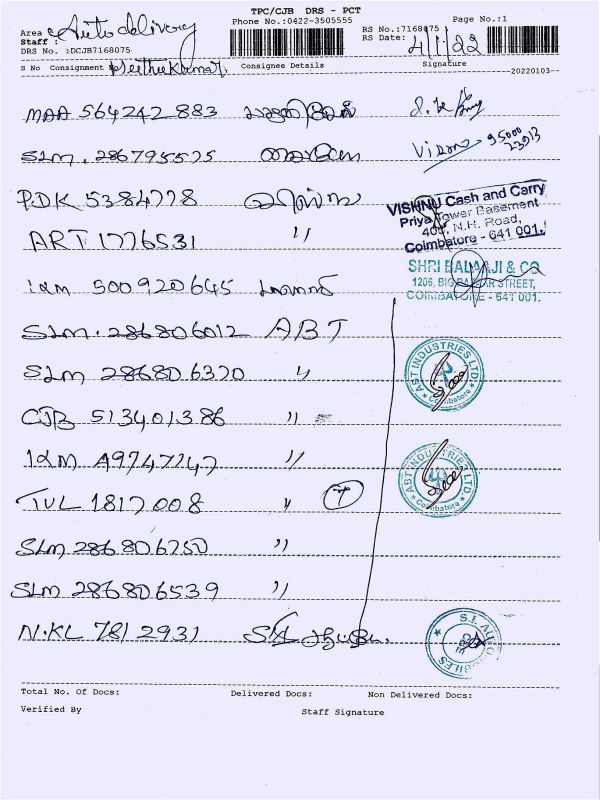 TPC/CJB DRS - PCT
Phone No.:0422-3505555
Page No.:1
Area : Auto delivery
Staff :
DRS No. :DCJB7168075
RS No.:7168075
RS Date: 4/1/22
S No Consignment Consignee Details Signature
20220103--
MAA 564242883
SLM. 286795575
Vison 95000
PDK 5384778
VISHNU Cash and Carry
Priya Tower Basement
N.H. Road,
Coimbatore - 641 001.
ART 1776531 "
500920645
SHRI BALAAJI & CO
1206, BIG BAZAAR STREET,
COIMBATORE - 641 001.
SLM. 286806012 ABT
SLM 286806370 "
ABT INDUSTRIES LTD
Coimbatore
CJB 513401386 "
IXM A9747247 "
ABT INDUSTRIES LTD
Coimbatore
TUL 1817008 " 7
SLM 286806750 "
SLM 286806539 "
N.KL 7812931
S.I. AUTOMOBILES
Total No. Of Docs: Delivered Docs: Non Delivered Docs:
Verified By Staff Signature